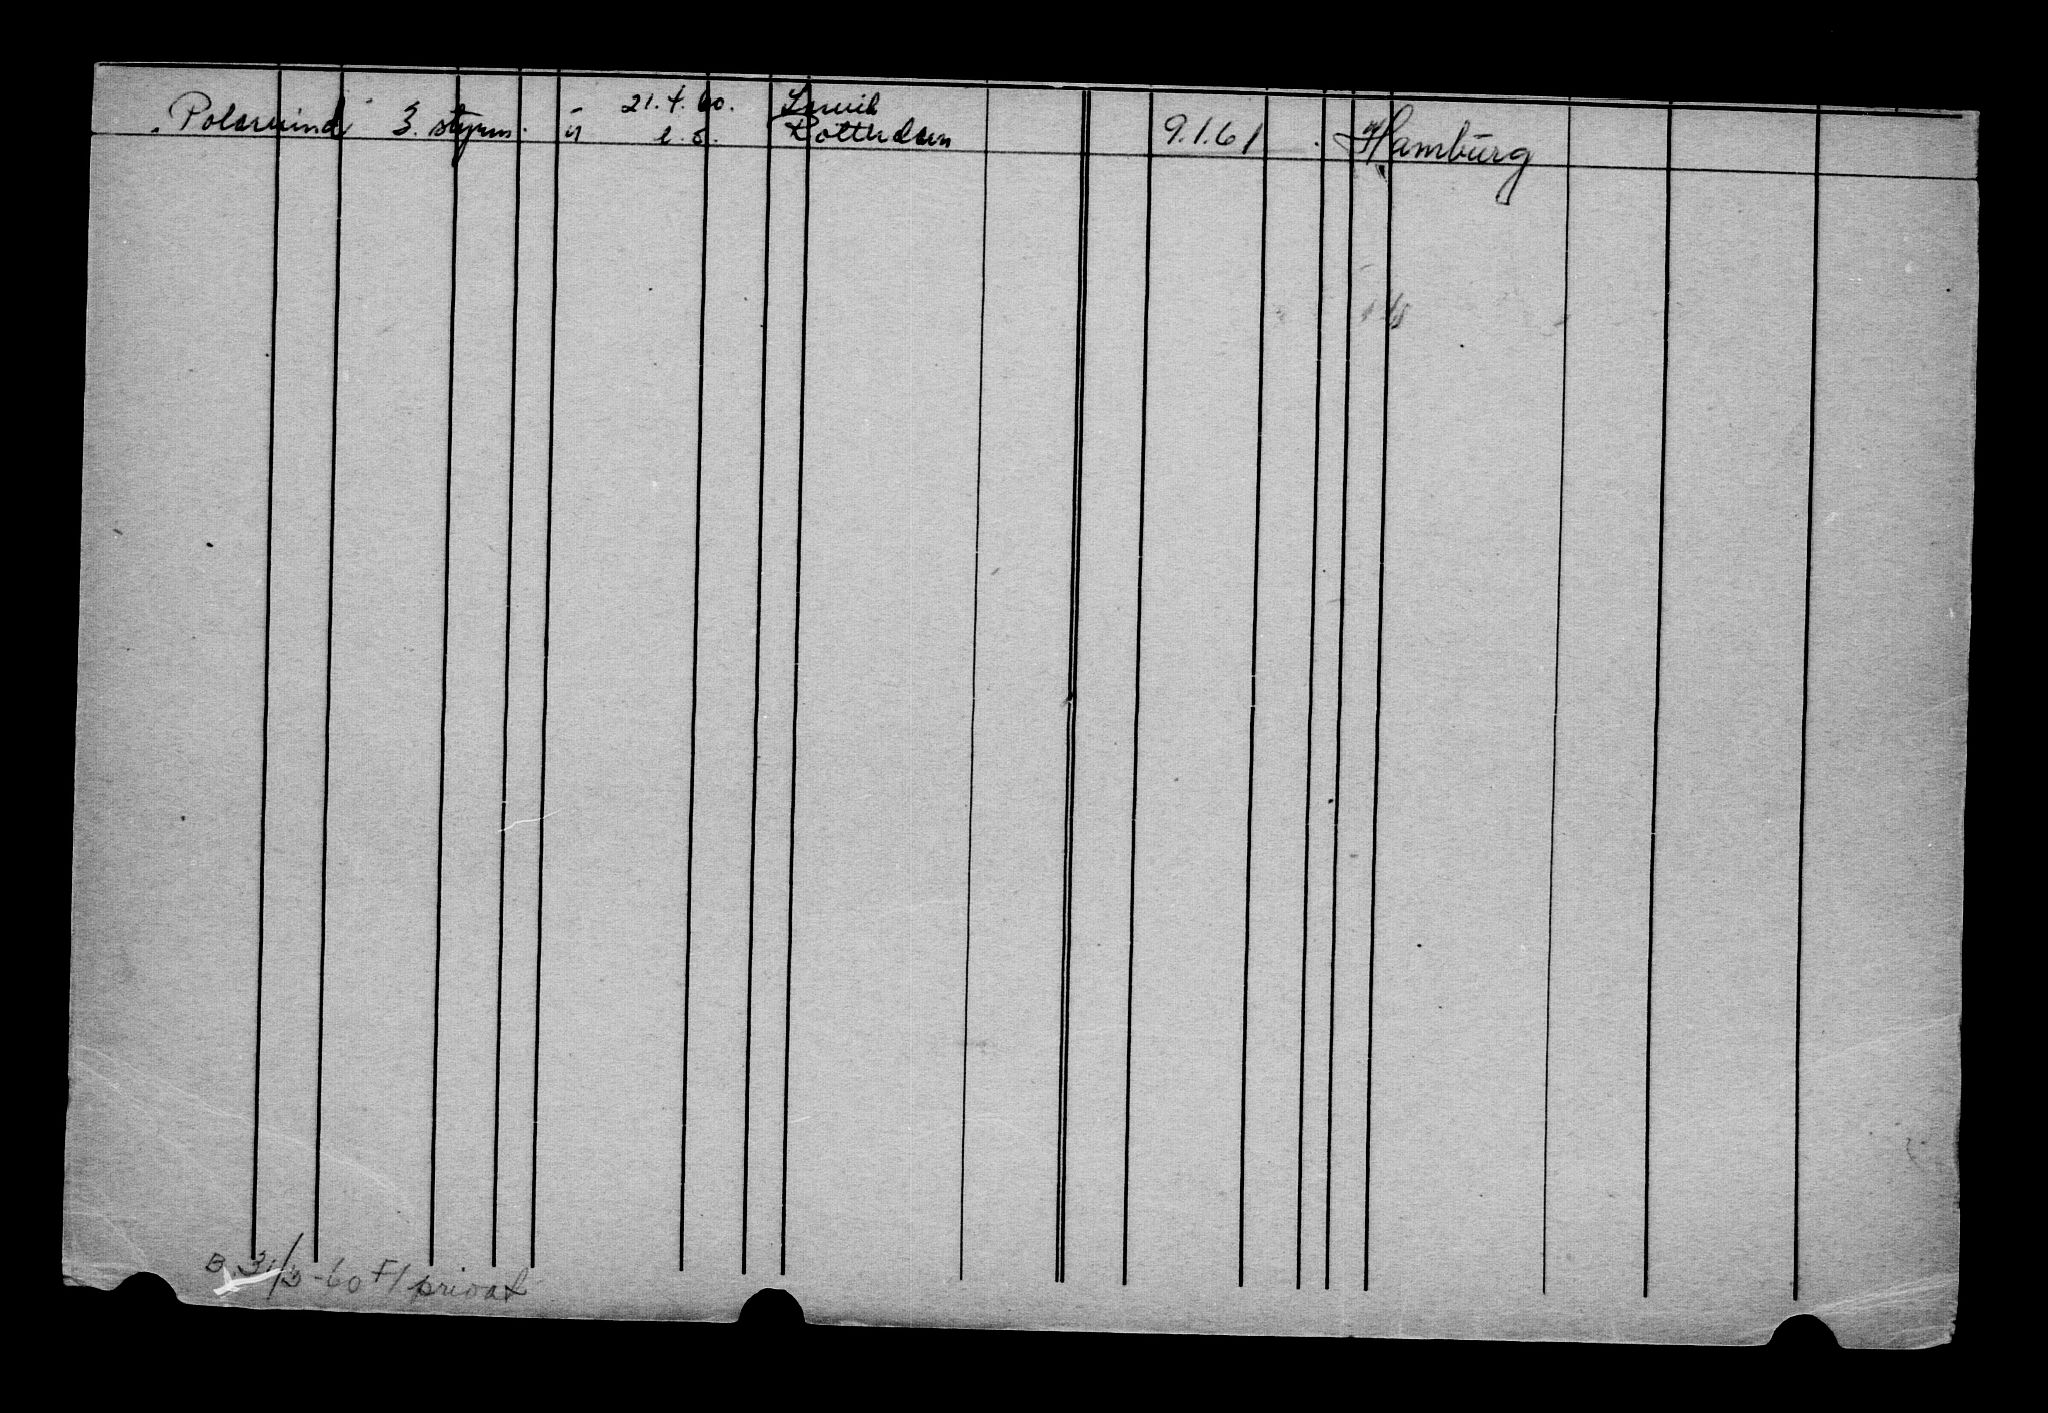 21.4.60. Larvik
"Polarvind" 3. styrm. ü e.o. Rotterdam 9.1.61 Hamburg
B. 31/3-60 F/ privat